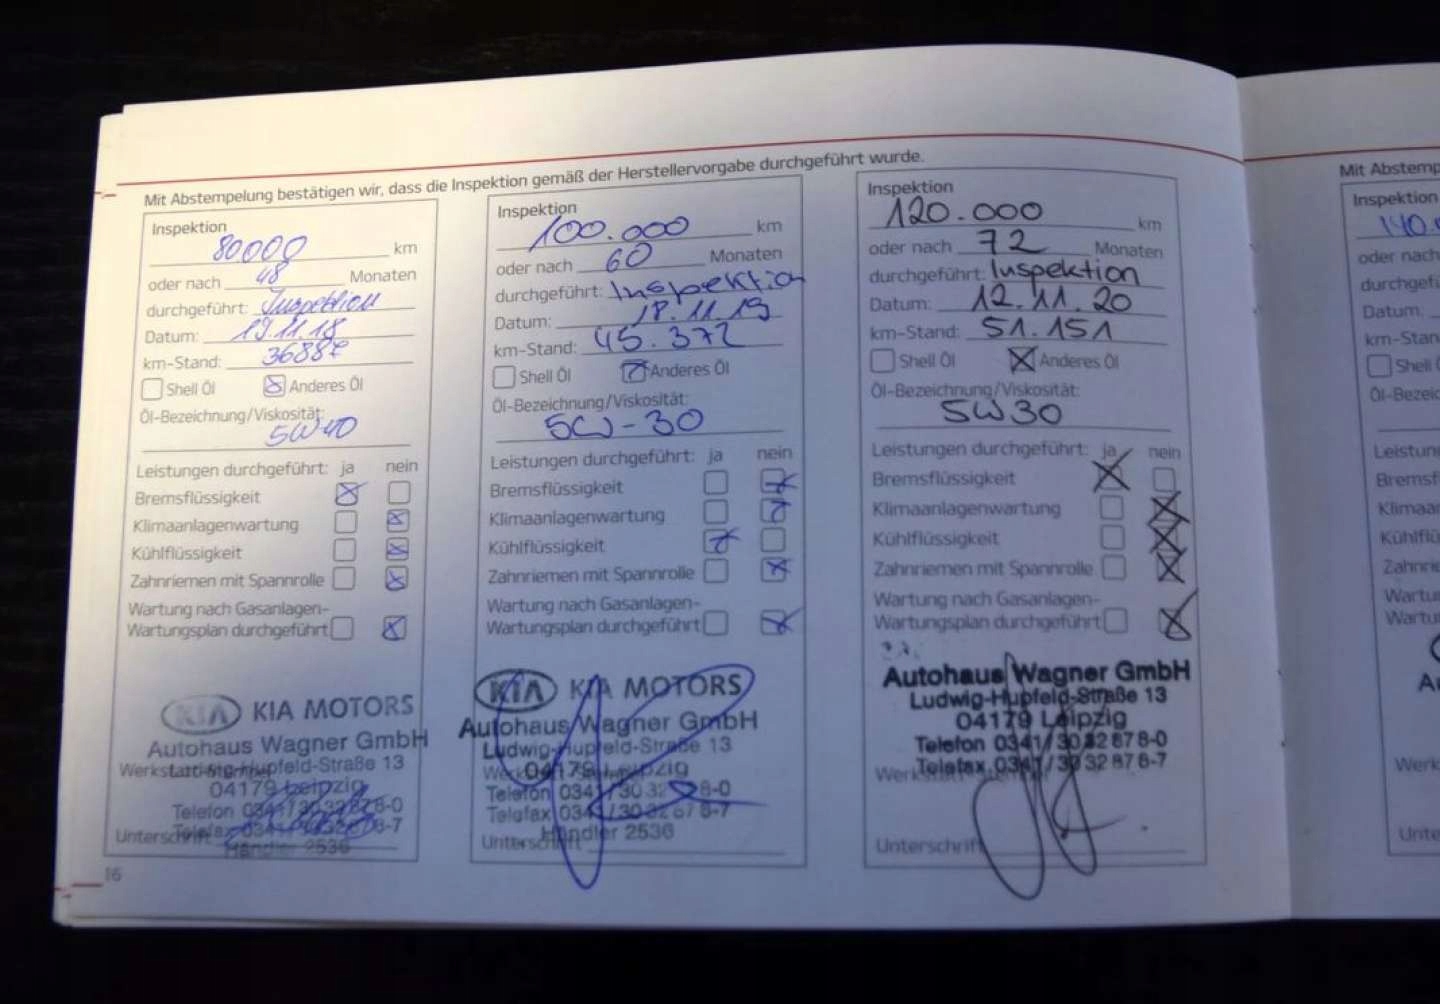 Mit Abstempelung bestätigen wir, dass die Inspektion gemäß der Herstellervorgabe durchgeführt wurde.
Inspektion
80000 km
oder nach 48 Monaten
durchgeführt: Inspektion
Datum: 19.11.18
km-Stand: 36887
Shell Öl Anderes Öl
Öl-Bezeichnung/Viskosität:
5W40
Leistungen durchgeführt: ja nein
Bremsflüssigkeit
Klimaanlagenwartung
Kühlflüssigkeit
Zahnriemen mit Spannrolle
Wartung nach Gasanlagen-
Wartungsplan durchgeführt
KIA KIA MOTORS
Autohaus Wagner GmbH
Ludwig-Hupfeld-Straße 13
04179 Leipzig
Telefon 0341/30 32 87 8-0
Telefax 0341/30 32 87 8-7
Händler 2536
Unterschrift
16
Inspektion
100.000 km
oder nach 60 Monaten
durchgeführt: Inspektion
Datum: 18.11.19
km-Stand: 45.372
Shell Öl Anderes Öl
Öl-Bezeichnung/Viskosität:
5W-30
Leistungen durchgeführt: ja nein
Bremsflüssigkeit
Klimaanlagenwartung
Kühlflüssigkeit
Zahnriemen mit Spannrolle
Wartung nach Gasanlagen-
Wartungsplan durchgeführt
KIA KIA MOTORS
Autohaus Wagner GmbH
Ludwig-Hupfeld-Straße 13
04179 Leipzig
Telefon 0341/30 32 87 8-0
Telefax 0341/30 32 87 8-7
Händler 2536
Unterschrift
Inspektion
120.000 km
oder nach 72 Monaten
durchgeführt: Inspektion
Datum: 12.11.20
km-Stand: 51.151
Shell Öl Anderes Öl
Öl-Bezeichnung/Viskosität:
5W30
Leistungen durchgeführt: ja nein
Bremsflüssigkeit
Klimaanlagenwartung
Kühlflüssigkeit
Zahnriemen mit Spannrolle
Wartung nach Gasanlagen-
Wartungsplan durchgeführt
Autohaus Wagner GmbH
Ludwig-Hupfeld-Straße 13
04179 Leipzig
Telefon 0341/30 32 87 8-0
Telefax 0341/30 32 87 8-7
Unterschrift
Mit Abstemp
Inspektion
140.
oder nach
durchgef
Datum:
km-Stan
Shell
Öl-Bezeic
Leistun
Bremsf
Klimaan
Kühlfl
Zahnrie
Wartu
Wartu
Werk
Unte